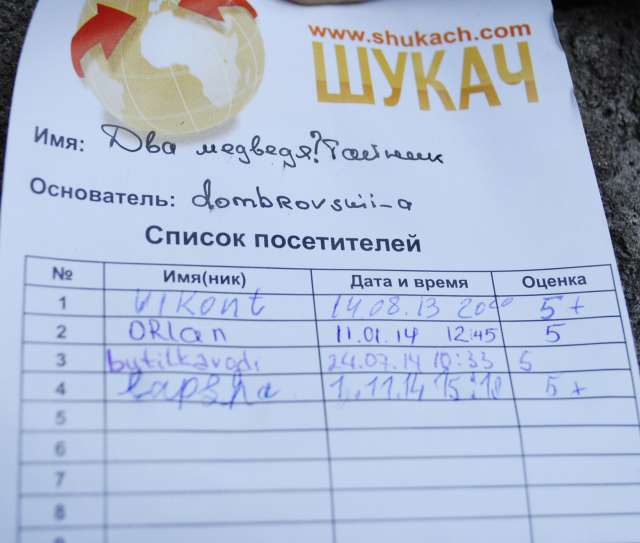 www.shukach.com
ШУКАЧ
Имя: Два медведя? Тайник
Основатель: dombrovskii-a
Список посетителей
№ Имя(ник) Дата и время Оценка
1 VIKont 14.08.13 20⁰⁰ 5+
2 ORlan 11.01.14 12:45 5
3 bytilkavodi 24.07.14 10:33 5
4 lapsha 15:18 5+
5
6
7
8